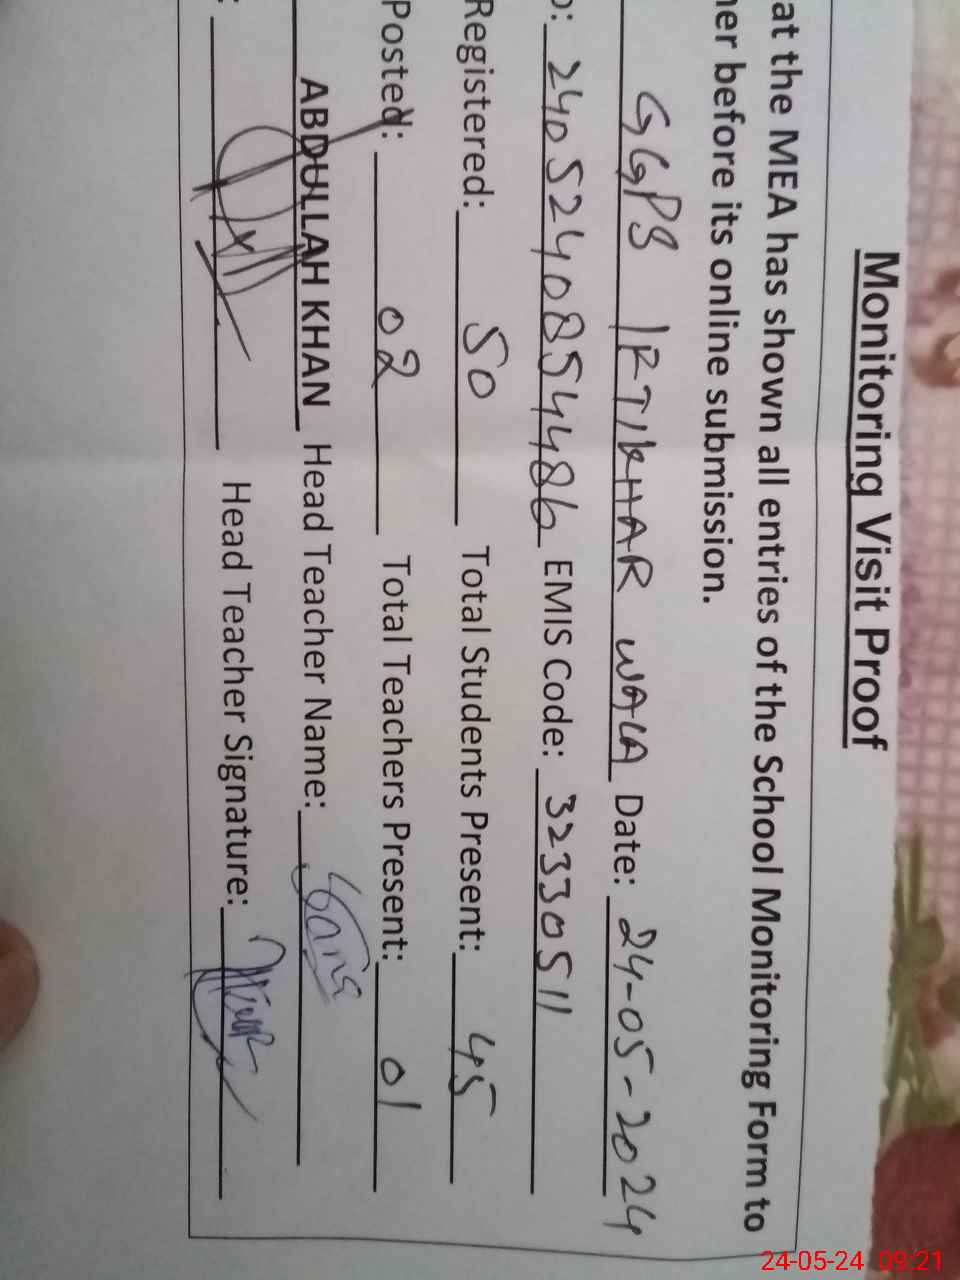 Monitoring Visit Proof
at the MEA has shown all entries of the School Monitoring Form to
her before its online submission.
GGPS IFTIKHAR WALA Date: 24-05-2024
: 2405240854486 EMIS Code: 32330511
Registered: 50 Total Students Present: 45
Posted: 02 Total Teachers Present: 01
ABDULLAH KHAN Head Teacher Name:
: Head Teacher Signature:
24-05-24 09:21